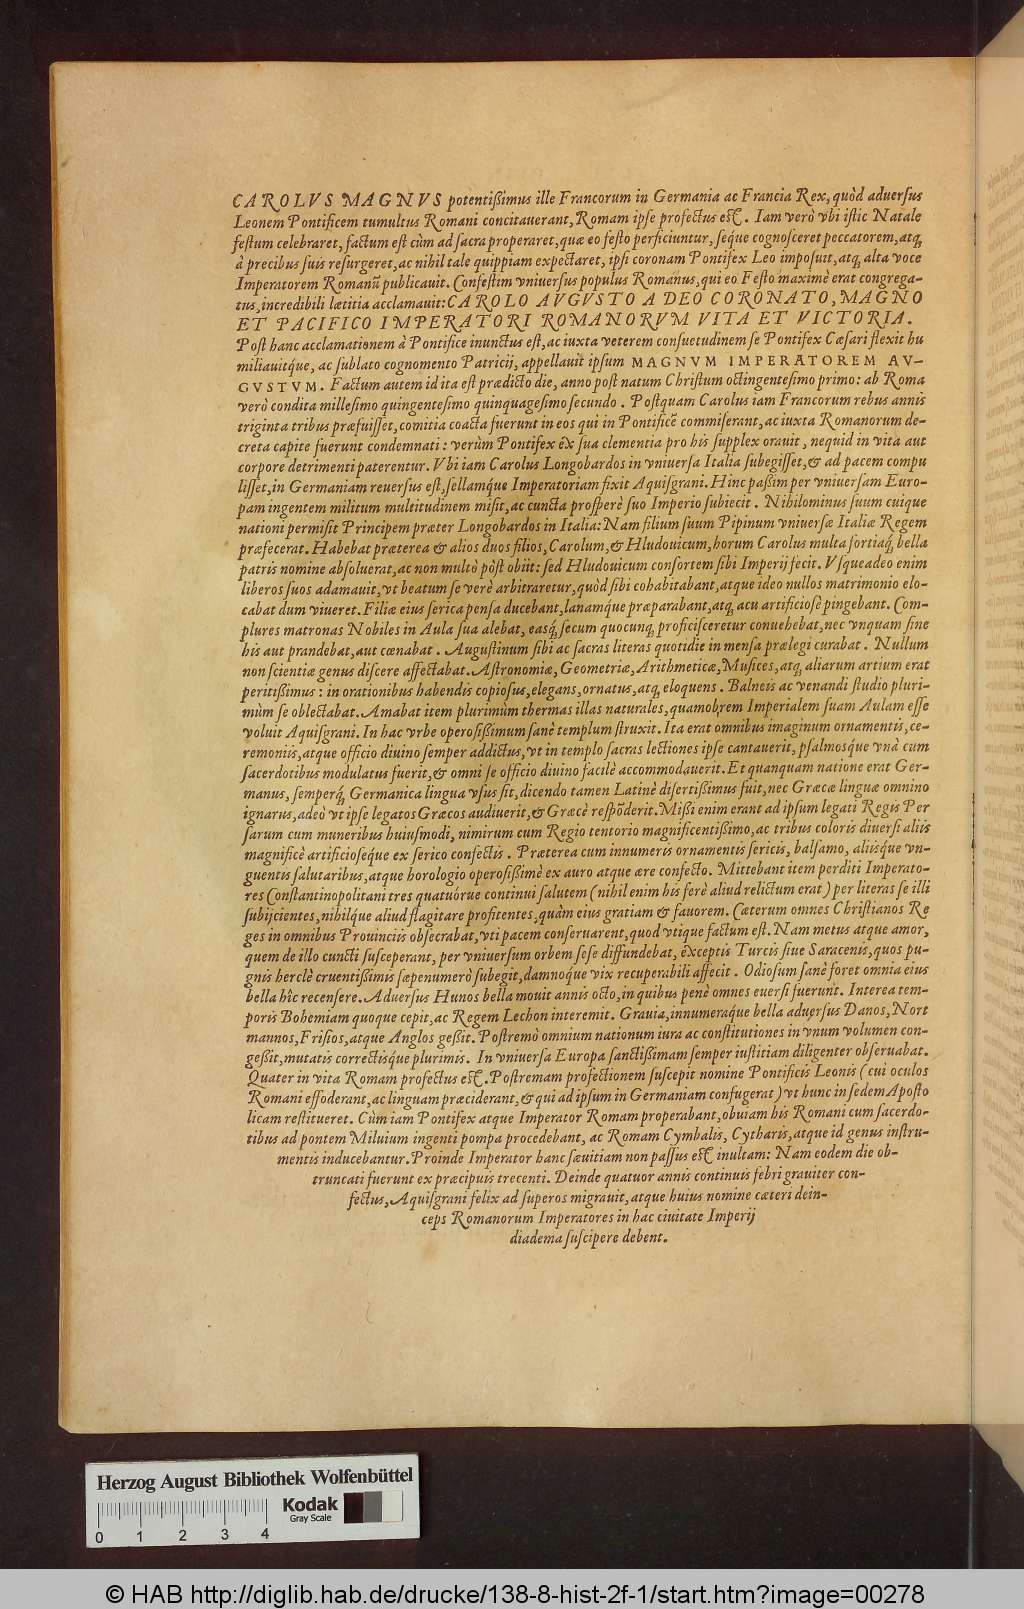 CAROLVS MAGNVS potentißimus ille Francorum in Germania ac Francia Rex, quòd aduersus
Leonem Pontificem tumultus Romani concitauerant, Romam ipse profectus est. Iam verò vbi istic Natale
festum celebraret, factum est cùm ad sacra properaret, quæ eo festo perficiuntur, seque cognosceret peccatorem, atq;
à precibus suis resurgeret, ac nihil tale quippiam expectaret, ipsi coronam Pontifex Leo imposuit, atq; alta voce
Imperatorem Romanū publicauit. Confestim vniuersus populus Romanus, qui eo Festo maximè erat congrega-
tus, incredibili lætitia acclamauit: CAROLO AVGVSTO A DEO CORONATO, MAGNO
ET PACIFICO IMPERATORI ROMANORVM VITA ET VICTORIA.
Post hanc acclamationem à Pontifice inunctus est, ac iuxta veterem consuetudinem se Pontifex Cæsari flexit hu
miliauitq́ue, ac sublato cognomento Patricij, appellauit ipsum MAGNVM IMPERATOREM AV-
GVSTVM. Factum autem id ita est prædicto die, anno post natum Christum octingentesimo primo: ab Roma
verò condita millesimo quingentesimo quinquagesimo secundo. Postquam Carolus iam Francorum rebus annis
triginta tribus præfuisset, comitia coacta fuerunt in eos qui in Pontificē commiserant, ac iuxta Romanorum de-
creta capite fuerunt condemnati: verùm Pontifex ex sua clementia pro his supplex orauit, nequid in vita aut
corpore detrimenti paterentur. Vbi iam Carolus Longobardos in vniuersa Italia subegisset, & ad pacem compu
lisset, in Germaniam reuersus est, sellamq́ue Imperatoriam fixit Aquisgrani. Hinc paßim per vniuersam Euro-
pam ingentem militum multitudinem misit, ac cuncta prosperè suo Imperio subiecit. Nihilominus suum cuique
nationi permisit Principem præter Longobardos in Italia: Nam filium suum Pipinum vniuersæ Italiæ Regem
præfecerat. Habebat præterea & alios duos filios, Carolum, & Hludouicum, horum Carolus multa fortiaq́; bella
patris nomine absoluerat, ac non multò pòst obiit: sed Hludouicum consortem sibi Imperij fecit. Vsqueadeo enim
liberos suos adamauit, vt beatum se verè arbitraretur, quòd sibi cohabitabant, atque ideo nullos matrimonio elo-
cabat dum viueret. Filiæ eius serica pensa ducebant, lanamq́ue præparabant, atq; acu artificiosè pingebant. Com-
plures matronas Nobiles in Aula sua alebat, easq́; secum quocunq; proficisceretur conuehebat, nec vnquam sine
his aut prandebat, aut cœnabat. Augustinum sibi ac sacras literas quotidie in mensa prælegi curabat. Nullum
non scientiæ genus discere affectabat. Astronomiæ, Geometriæ, Arithmeticæ, Musices, atq; aliarum artium erat
peritißimus: in orationibus habendis copiosus, elegans, ornatus, atq; eloquens. Balneis ac venandi studio pluri-
mùm se oblectabat. Amabat item plurimùm thermas illas naturales, quamobrem Imperialem suam Aulam esse
voluit Aquisgrani. In hac vrbe operosißimum sanè templum struxit. Ita erat omnibus imaginum ornamentis, ce-
remoniis, atque officio diuino semper addictus, vt in templo sacras lectiones ipse cantauerit, psalmosque vnà cum
sacerdotibus modulatus fuerit, & omni se officio diuino facilè accommodauerit. Et quanquam natione erat Ger-
manus, semperq́; Germanica lingua vsus sit, dicendo tamen Latinè disertißimus fuit, nec Græcæ linguæ omnino
ignarus, adeò vt ipse legatos Græcos audiuerit, & Græcè respōderit. Mißi enim erant ad ipsum legati Regis Per
sarum cum muneribus huiusmodi, nimirum cum Regio tentorio magnificentißimo, ac tribus coloris diuersi aliis
magnificè artificioseq́ue ex serico confectis. Præterea cum innumeris ornamentis sericis, balsamo, aliisque vn-
guentis salutaribus, atque horologio operosißimè ex auro atque ære confecto. Mittebant item perditi Imperato-
res Constantinopolitani tres quatuórue continui salutem (nihil enim his ferè aliud relictum erat) per literas se illi
subijcientes, nihilq́ue aliud flagitare profitentes, quàm eius gratiam & fauorem. Cæterum omnes Christianos Re
ges in omnibus Prouinciis obsecrabat, vti pacem conseruarent, quod vtique factum est. Nam metus atque amor,
quem de illo cuncti susceperant, per vniuersum orbem sese diffundebat, exceptis Turcis siue Saracenis, quos pu-
gnis herclè cruentißimis sæpenumerò subegit, damnoq́ue vix recuperabili affecit. Odiosum sanè foret omnia eius
bella hîc recensere. Aduersus Hunos bella mouit annis octo, in quibus penè omnes euersi fuerunt. Interea tem-
poris Bohemiam quoque cepit, ac Regem Lechon interemit. Grauia, innumeraq́ue bella aduersus Danos, Nort
mannos, Frisios, atque Anglos geßit. Postremò omnium nationum iura ac constitutiones in vnum volumen con-
geßit, mutatis correctisq́ue plurimis. In vniuersa Europa sanctißimam semper iustitiam diligenter obseruabat.
Quater in vita Romam profectus est. Postremam profectionem suscepit nomine Pontificis Leonis (cui oculos
Romani effoderant, ac linguam præciderant, & qui ad ipsum in Germaniam confugerat) vt hunc in sedem Aposto
licam restitueret. Cùm iam Pontifex atque Imperator Romam properabant, obuiam his Romani cum sacerdo-
tibus ad pontem Miluium ingenti pompa procedebant, ac Romam Cymbalis, Cytharis, atque id genus instru-
mentis inducebantur. Proinde Imperator hanc sæuitiam non passus est inultam: Nam eodem die ob-
truncati fuerunt ex præcipuis trecenti. Deinde quatuor annis continuis febri grauiter con-
fectus, Aquisgrani felix ad superos migrauit, atque huius nomine cæteri dein-
ceps Romanorum Imperatores in hac ciuitate Imperij
diadema suscipere debent.
Herzog August Bibliothek Wolfenbüttel
Kodak
Gray Scale
0 1 2 3 4
© HAB http://diglib.hab.de/drucke/138-8-hist-2f-1/start.htm?image=00278